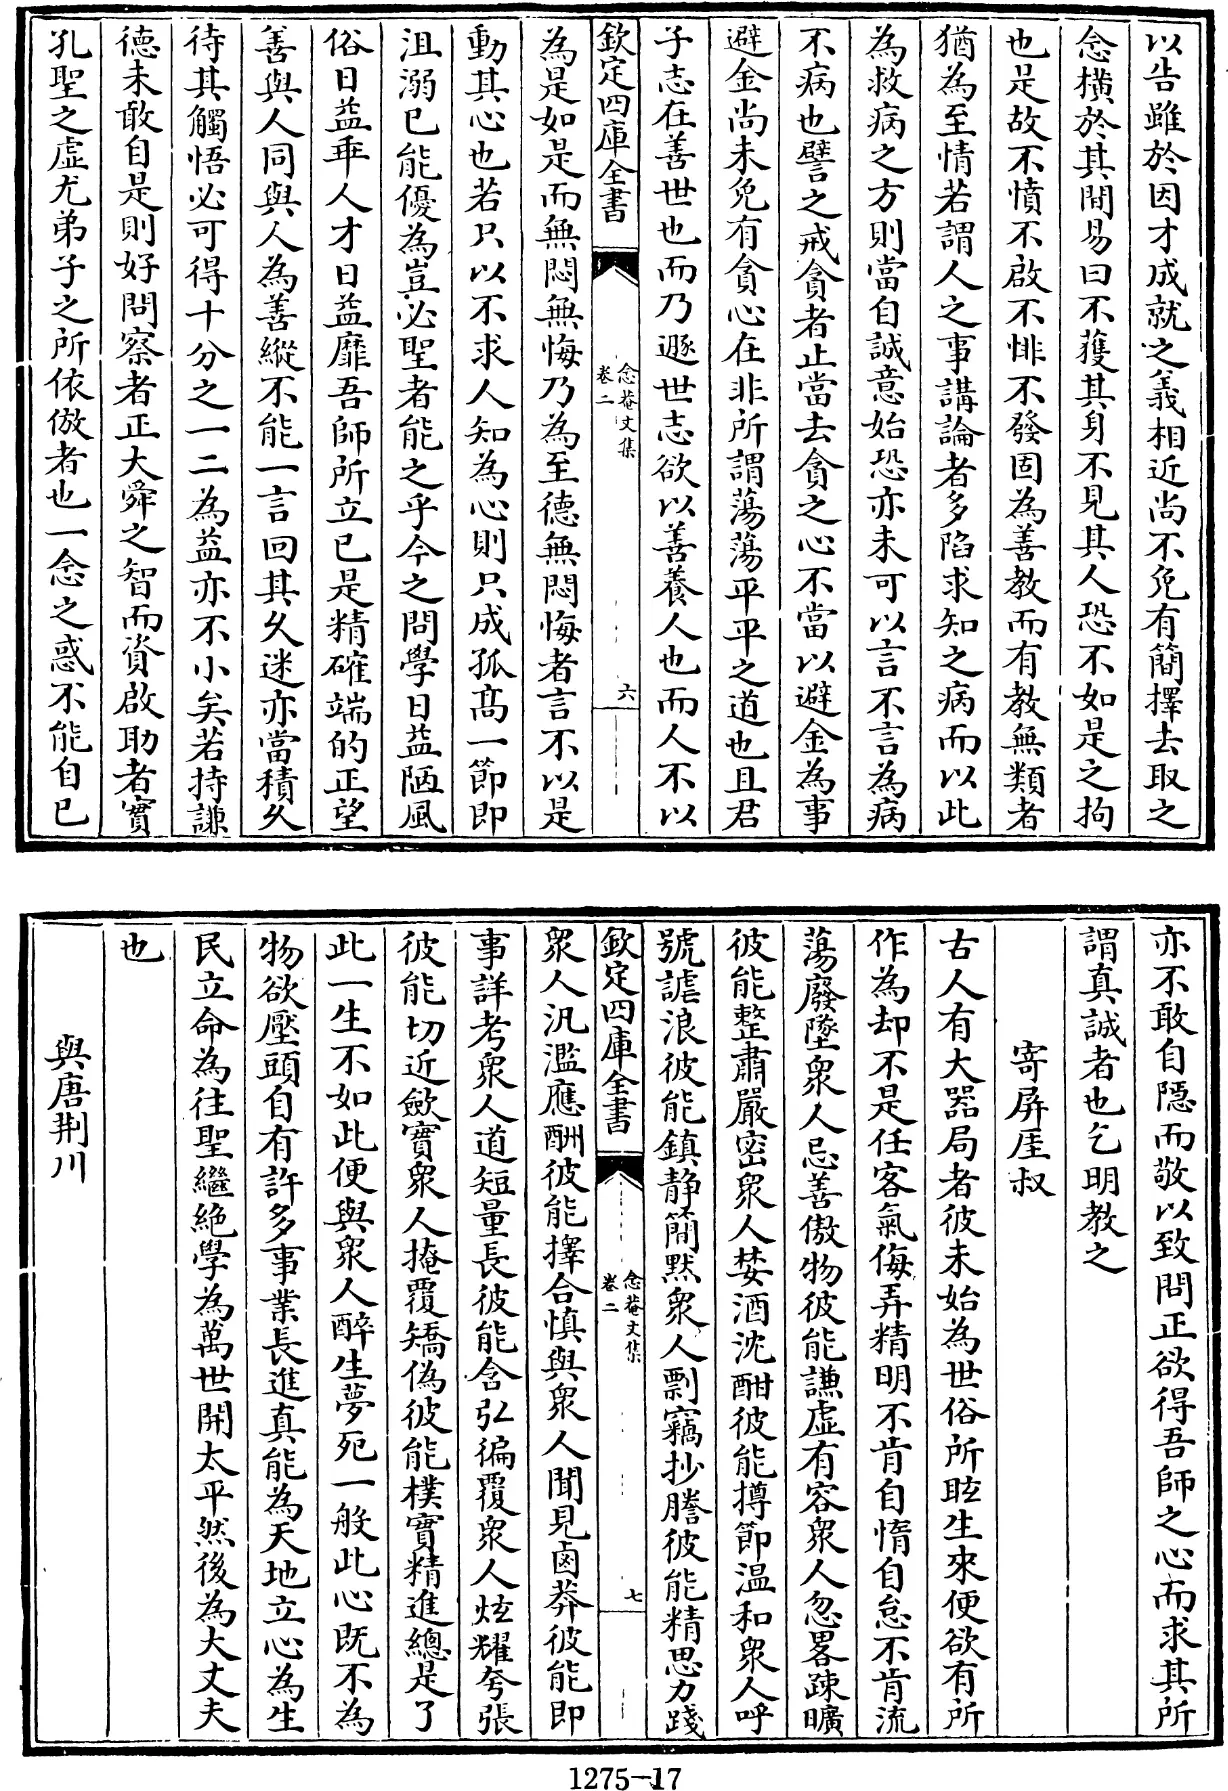 以告雖於因才成就之義相近尚不免有簡擇去取之
念橫於其間易曰不獲其身不見其人恐不如是之拘
也是故不憤不啟不悱不發固為善教而有教無類者
猶為至情若謂人之事講論者多陷求知之病而以此
為救病之方則當自誠意始恐亦未可以言不言為病
不病也譬之戒貪者止當去貪之心不當以避金為事
避金尚未免有貪心在非所謂蕩蕩平平之道也且君
子志在善世也而乃遯世志欲以善養人也而人不以
欽定四庫全書
念菴文集
卷二
六
為是如是而無悶無悔乃為至德無悶悔者言不以是
動其心也若只以不求人知為心則只成孤高一節即
沮溺已能優為豈必聖者能之乎今之問學日益陋風
俗日益乖人才日益靡吾師所立已是精確端的正望
善與人同與人為善縱不能一言回其久迷亦當積久
待其觸悟必可得十分之一二為益亦不小矣若持謙
德未敢自是則好問察者正大舜之智而資啟助者實
孔聖之虛尤弟子之所依倣者也一念之惑不能自已
亦不敢自隱而敬以致問正欲得吾師之心而求其所
謂真誠者也乞明教之
寄屏厓叔
古人有大器局者彼未始為世俗所眩生來便欲有所
作為却不是任客氣侮弄精明不肯自惰自怠不肯流
蕩廢墜衆人忌善傲物彼能謙虛有容衆人忽畧疎曠
彼能整肅嚴密衆人婪酒沈酣彼能撙節温和衆人呼
號謔浪彼能鎮静簡默衆人剽竊抄謄彼能精思力踐
欽定四庫全書
念菴文集
卷二
七
衆人汎濫應酬彼能擇合慎與衆人聞見鹵莽彼能即
事詳考衆人道短量長彼能含弘徧覆衆人炫耀夸張
彼能切近歛實衆人掩覆矯偽彼能樸實精進總是了
此一生不如此便與衆人醉生夢死一般此心既不為
物欲壓頭自有許多事業長進真能為天地立心為生
民立命為往聖繼絶學為萬世開太平然後為大丈夫
也
與唐荆川
1275-17